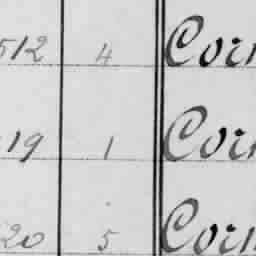 512 4 Corn
19 1 Corn
20 5 Corn